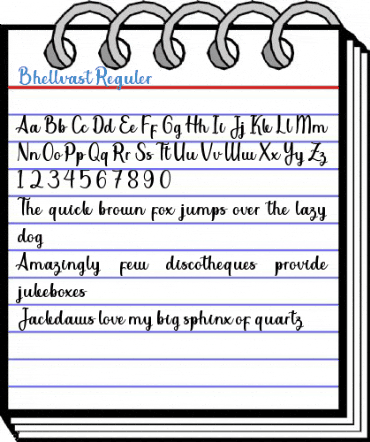 Bhellvast Reguler
Aa Bb Cc Dd Ee Ff Gg Hh Ii Jj Kk Ll Mm
Nn Oo Pp Qq Rr Ss Tt Uu Vv Ww Xx Yy Zz
1 2 3 4 5 6 7 8 9 0
The quick brown fox jumps over the lazy
dog
Amazingly few discotheques provide
jukeboxes
Jackdaws love my big sphinx of quartz